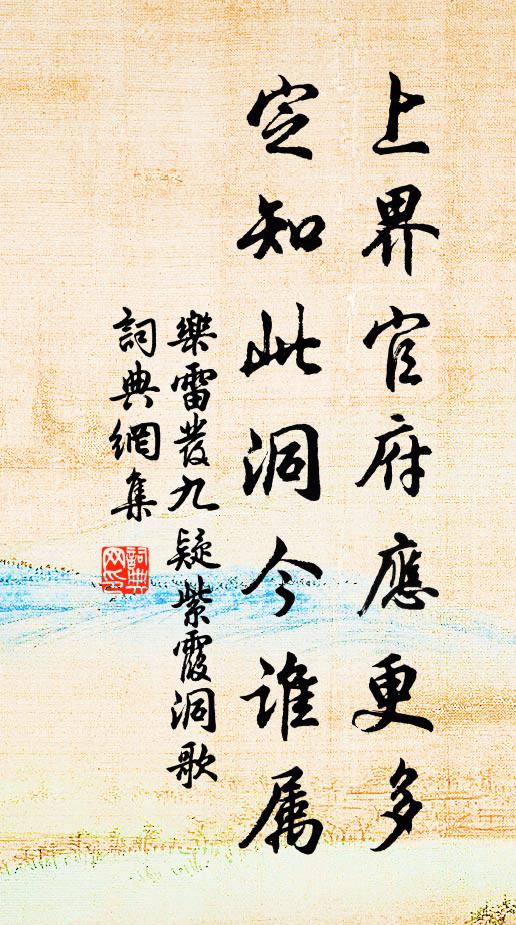 上界官府應更多
定知此洞今谁属
樂雷發九疑紫霞洞歌
詞典網集
詞典
网印